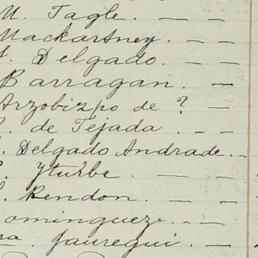 M. Tagle. — —
Mackartney. — —
J. Delgado. — —
Barragan. — —
Arzobizpo de ? — —
de Tejada. — —
Delgado Andrade. —
Yturbe — —
Rendon. — —
ominguez. — —
ra. Jauregui. — —